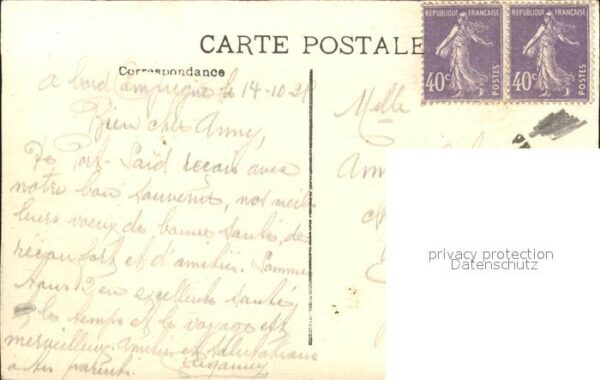 CARTE POSTALE
Correspondance
REPUBLIQUE FRANÇAISE
40c
POSTES
REPUBLIQUE FRANÇAISE
40c
POSTES
a bord le 14-10-28
Bien chère Anny,
De Port-Saïd reçois avec
notre bon souvenir, nos meil-
leurs voeux de bonne santé, de
réconfort et d'amitiés. Sommes
tous 2 en excellente santé,
le temps et le voyage est
merveilleux. Amitiés et salutations
à tes parents.
Melle
privacy protection
Datenschutz